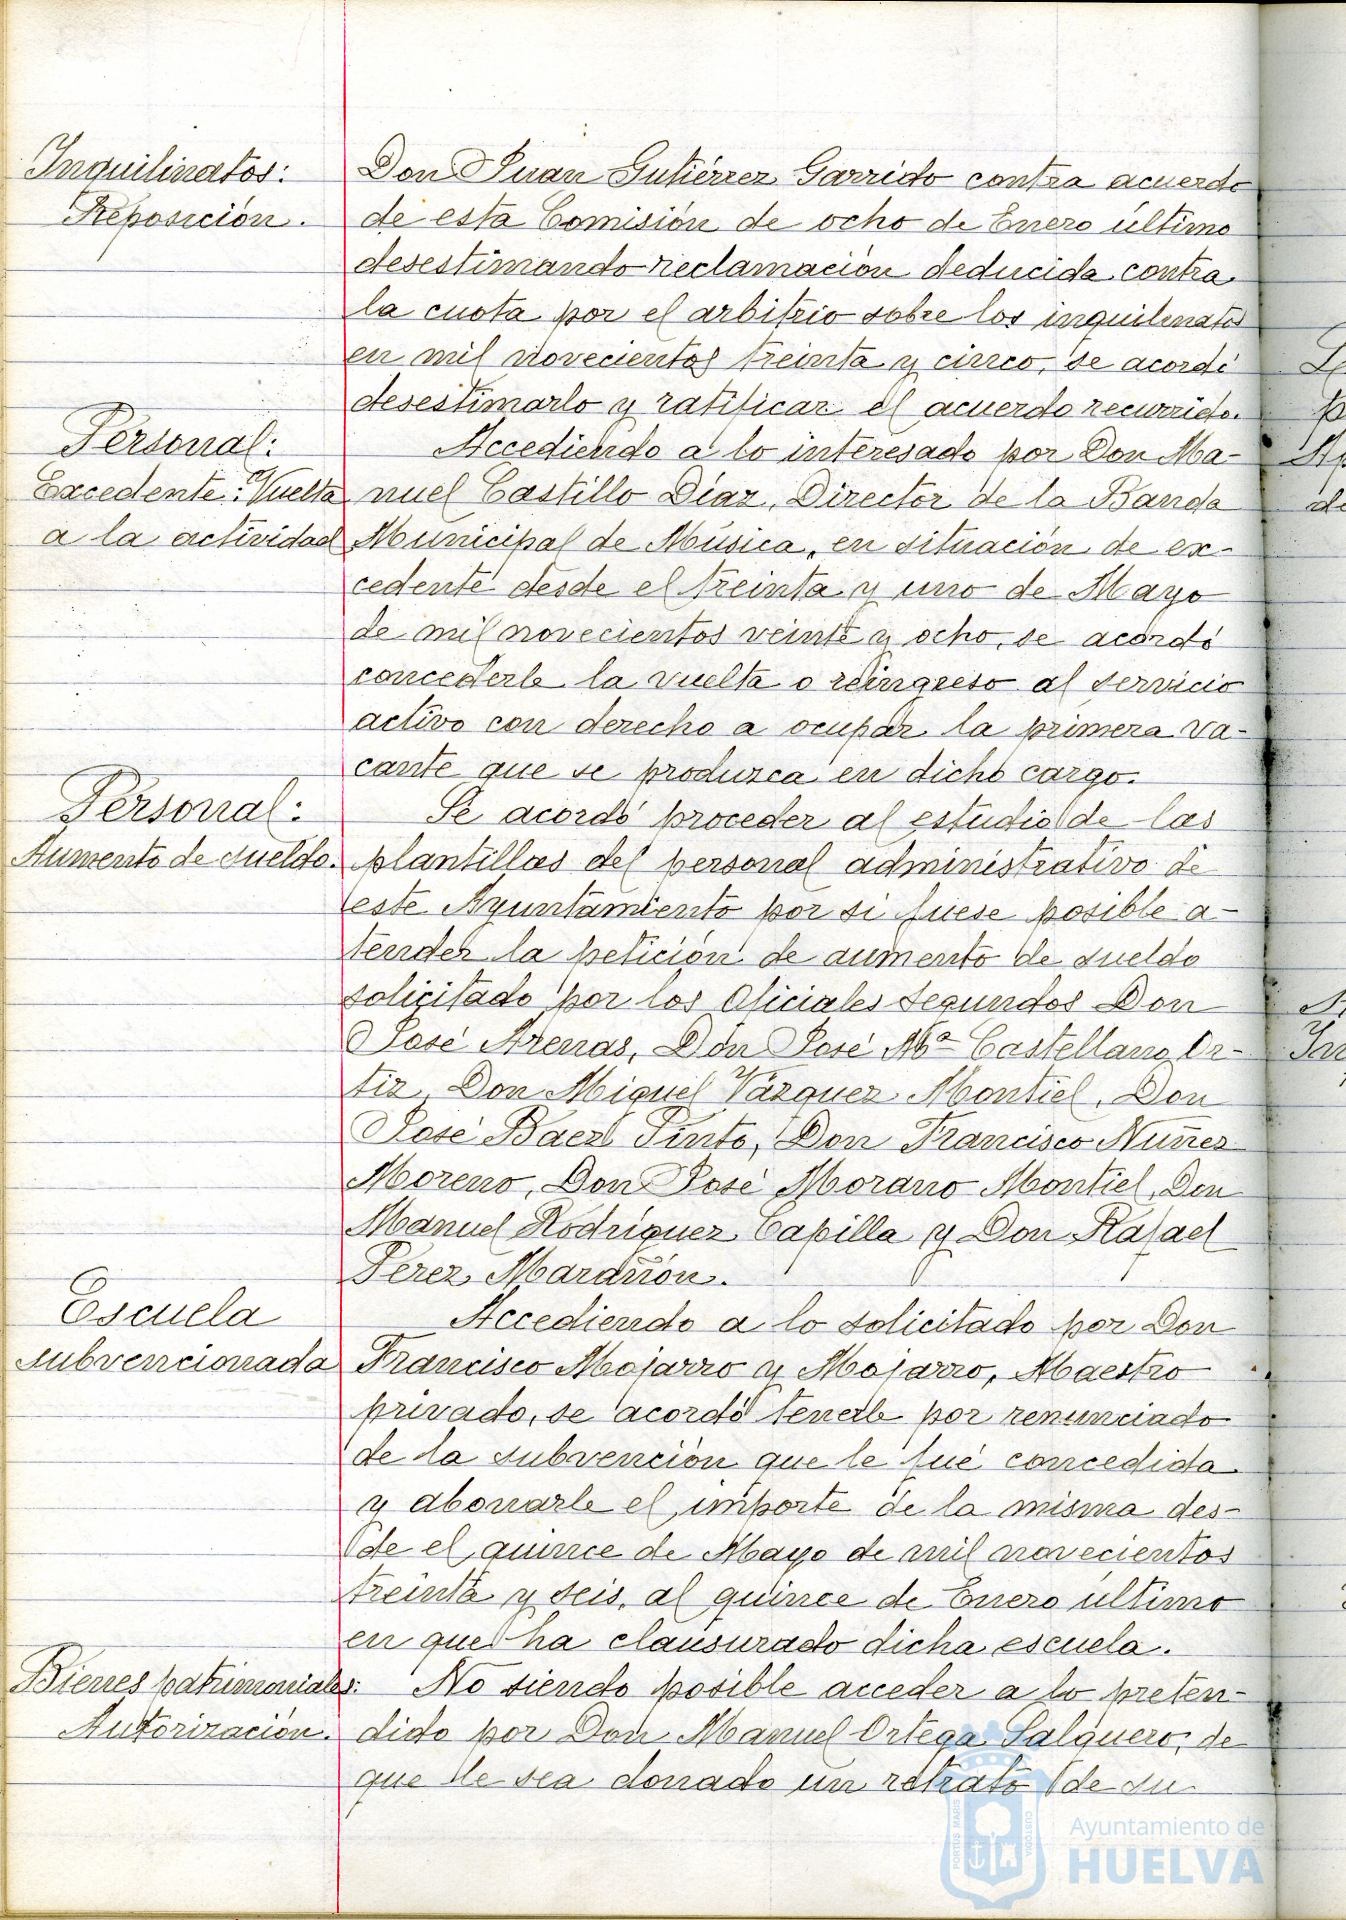 Inquilinatos:
Reposición.
Don Juan Gutiérrez Garrido contra acuerdo
de esta Comisión de ocho de Enero último
desestimando reclamación deducida contra
la cuota por el arbitrio sobre los inquilinatos
en mil novecientos treinta y cinco, se acordó
desestimarlo y ratificar el acuerdo recurrido.
Personal:
Excedente: Vuelta
a la actividad
Accediendo a lo interesado por Don Ma-
nuel Castillo Díaz, Director de la Banda
Municipal de Música, en situación de ex-
cedente desde el treinta y uno de Mayo
de mil novecientos veinte y ocho, se acordó
concederle la vuelta o reingreso al servicio
activo con derecho a ocupar la primera va-
cante que se produzca en dicho cargo.
Personal:
Aumento de sueldo.
Se acordó proceder al estudio de las
plantillas del personal administrativo de
este Ayuntamiento por si fuese posible a-
tender la petición de aumento de sueldo
solicitado por los Oficiales segundos Don
José Arenas, Don José Mª Castellano Or-
tiz, Don Miguel Vázquez Montiel, Don
José Baez Pinto, Don Francisco Nuñez
Moreno, Don José Morano Montiel, Don
Manuel Rodríguez Capilla y Don Rafael
Pérez Marañón.
Escuela
subvencionada
Accediendo a lo solicitado por Don
Francisco Mojarro y Mojarro, Maestro
privado, se acordó tenerle por renunciado
de la subvención que le fué concedida
y abonarle el importe de la misma des-
de el quince de Mayo de mil novecientos
treinta y seis, al quince de Enero último
en que ha clausurado dicha escuela.
Bienes patrimoniales:
Autorización.
No siendo posible acceder a lo preten-
dido por Don Manuel Ortega Salguero, de
que le sea donado un retrato de su
PORTUS MARIS
CUSTODIA
Ayuntamiento de
HUELVA